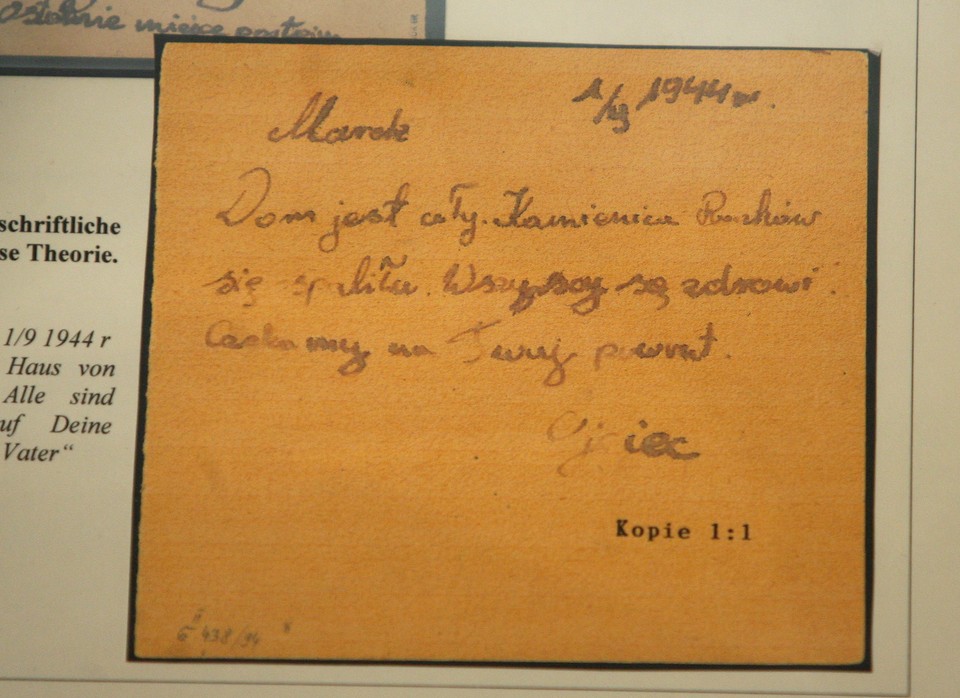 ostatnie miejsce postoju
schriftliche
se Theorie.
1/9 1944 r
Haus von
Alle sind
uf Deine
Vater“
1/9 1944 r.
Marek
Dom jest cały. Kamienica
się spaliła. Wszyscy są zdrowi.
Czekamy na Twój powrót.
Ojciec
Kopie 1:1
438/94